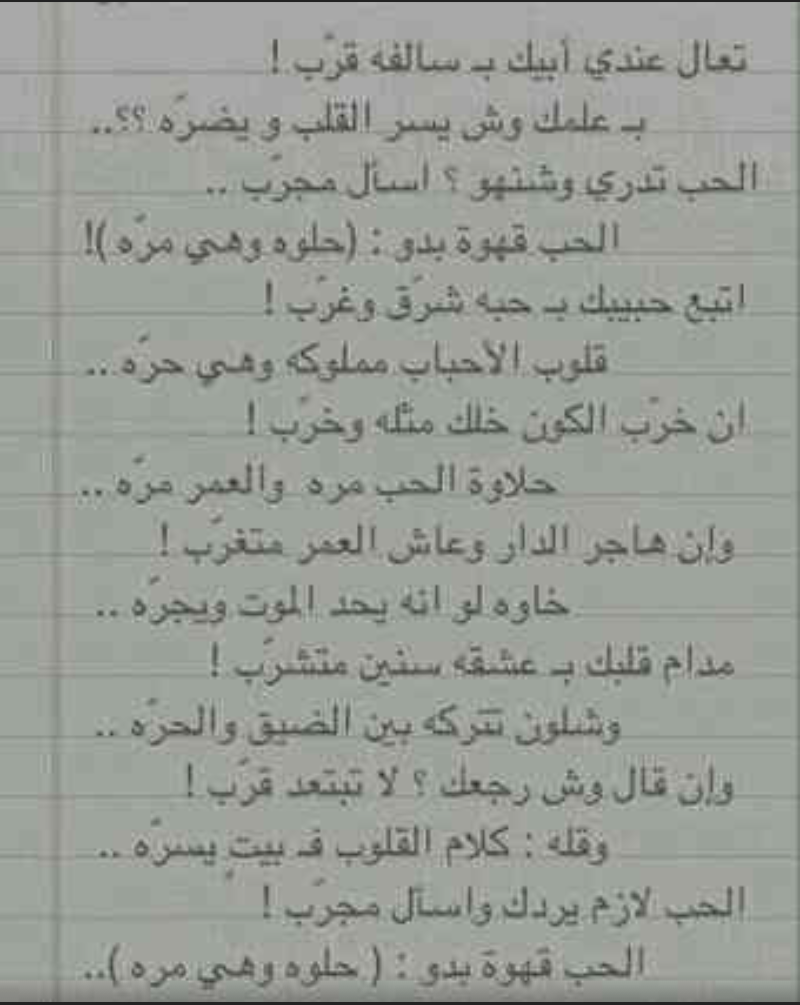 تعال عندي أبيك بـ سالفه قرّب !
بـ علمك وش يسر القلب و يضرّه ؟؟..
الحب تدري وشنهو ؟ اسأل مجرّب ..
الحب قهوة بدو : (حلوه وهي مرّه )!
اتبع حبيبك بـ حبه شرّق وغرّب !
قلوب الأحباب مملوكه وهي حرّه ...
ان خرّب الكون خلك مثله وخرّب !
حلاوة الحب مره والعمر مرّه ..
وإن هاجر الدار وعاش العمر متغرّب !
خاوه لو انه يحد الموت ويجرّه ..
مدام قلبك بـ عشقه سنين متشرّب !
وشلون تتركه بين الضيق والحرّه ..
وإن قال وش رجعك ؟ لا تبتعد قرّب !
وقله : كلام القلوب فـ بيت يسرّه ..
الحب لازم يردك واسأل مجرّب !
الحب قهوة بدو : ( حلوه وهي مره )..